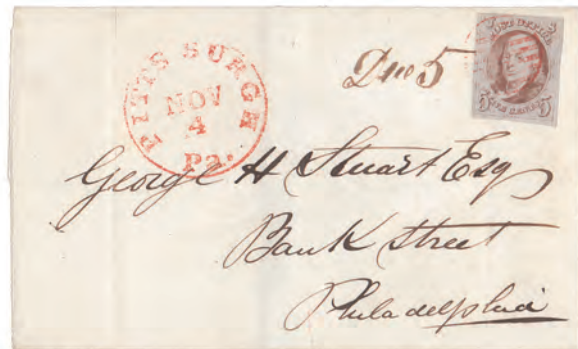 PITTSBURGH
NOV
4
Pa.
Due 5
POST OFFICE
FIVE CENTS
5 5
George H Stuart Esq
Bank Street
Philadelphia